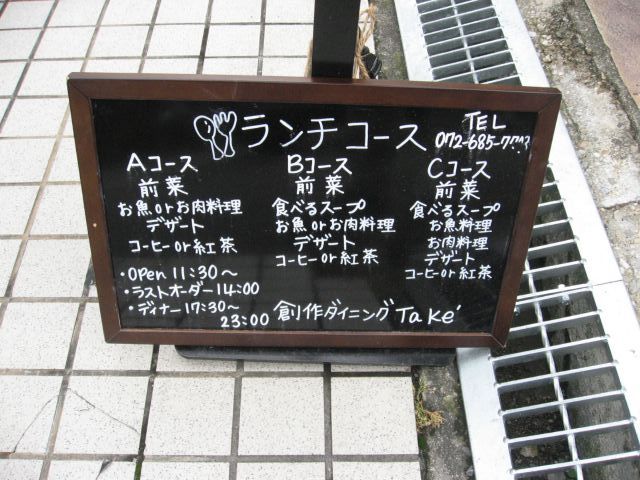 ランチコース
TEL
Aコース
前菜
お魚orお肉料理
デザート
コーヒーor紅茶
Bコース
前菜
食べるスープ
お魚orお肉料理
デザート
コーヒーor紅茶
Cコース
前菜
食べるスープ
お魚料理
お肉料理
デザート
コーヒーor紅茶
・open 11:30～
・ラストオーダー14:00
・ディナー17:30～
23:00
創作ダイニングTake'